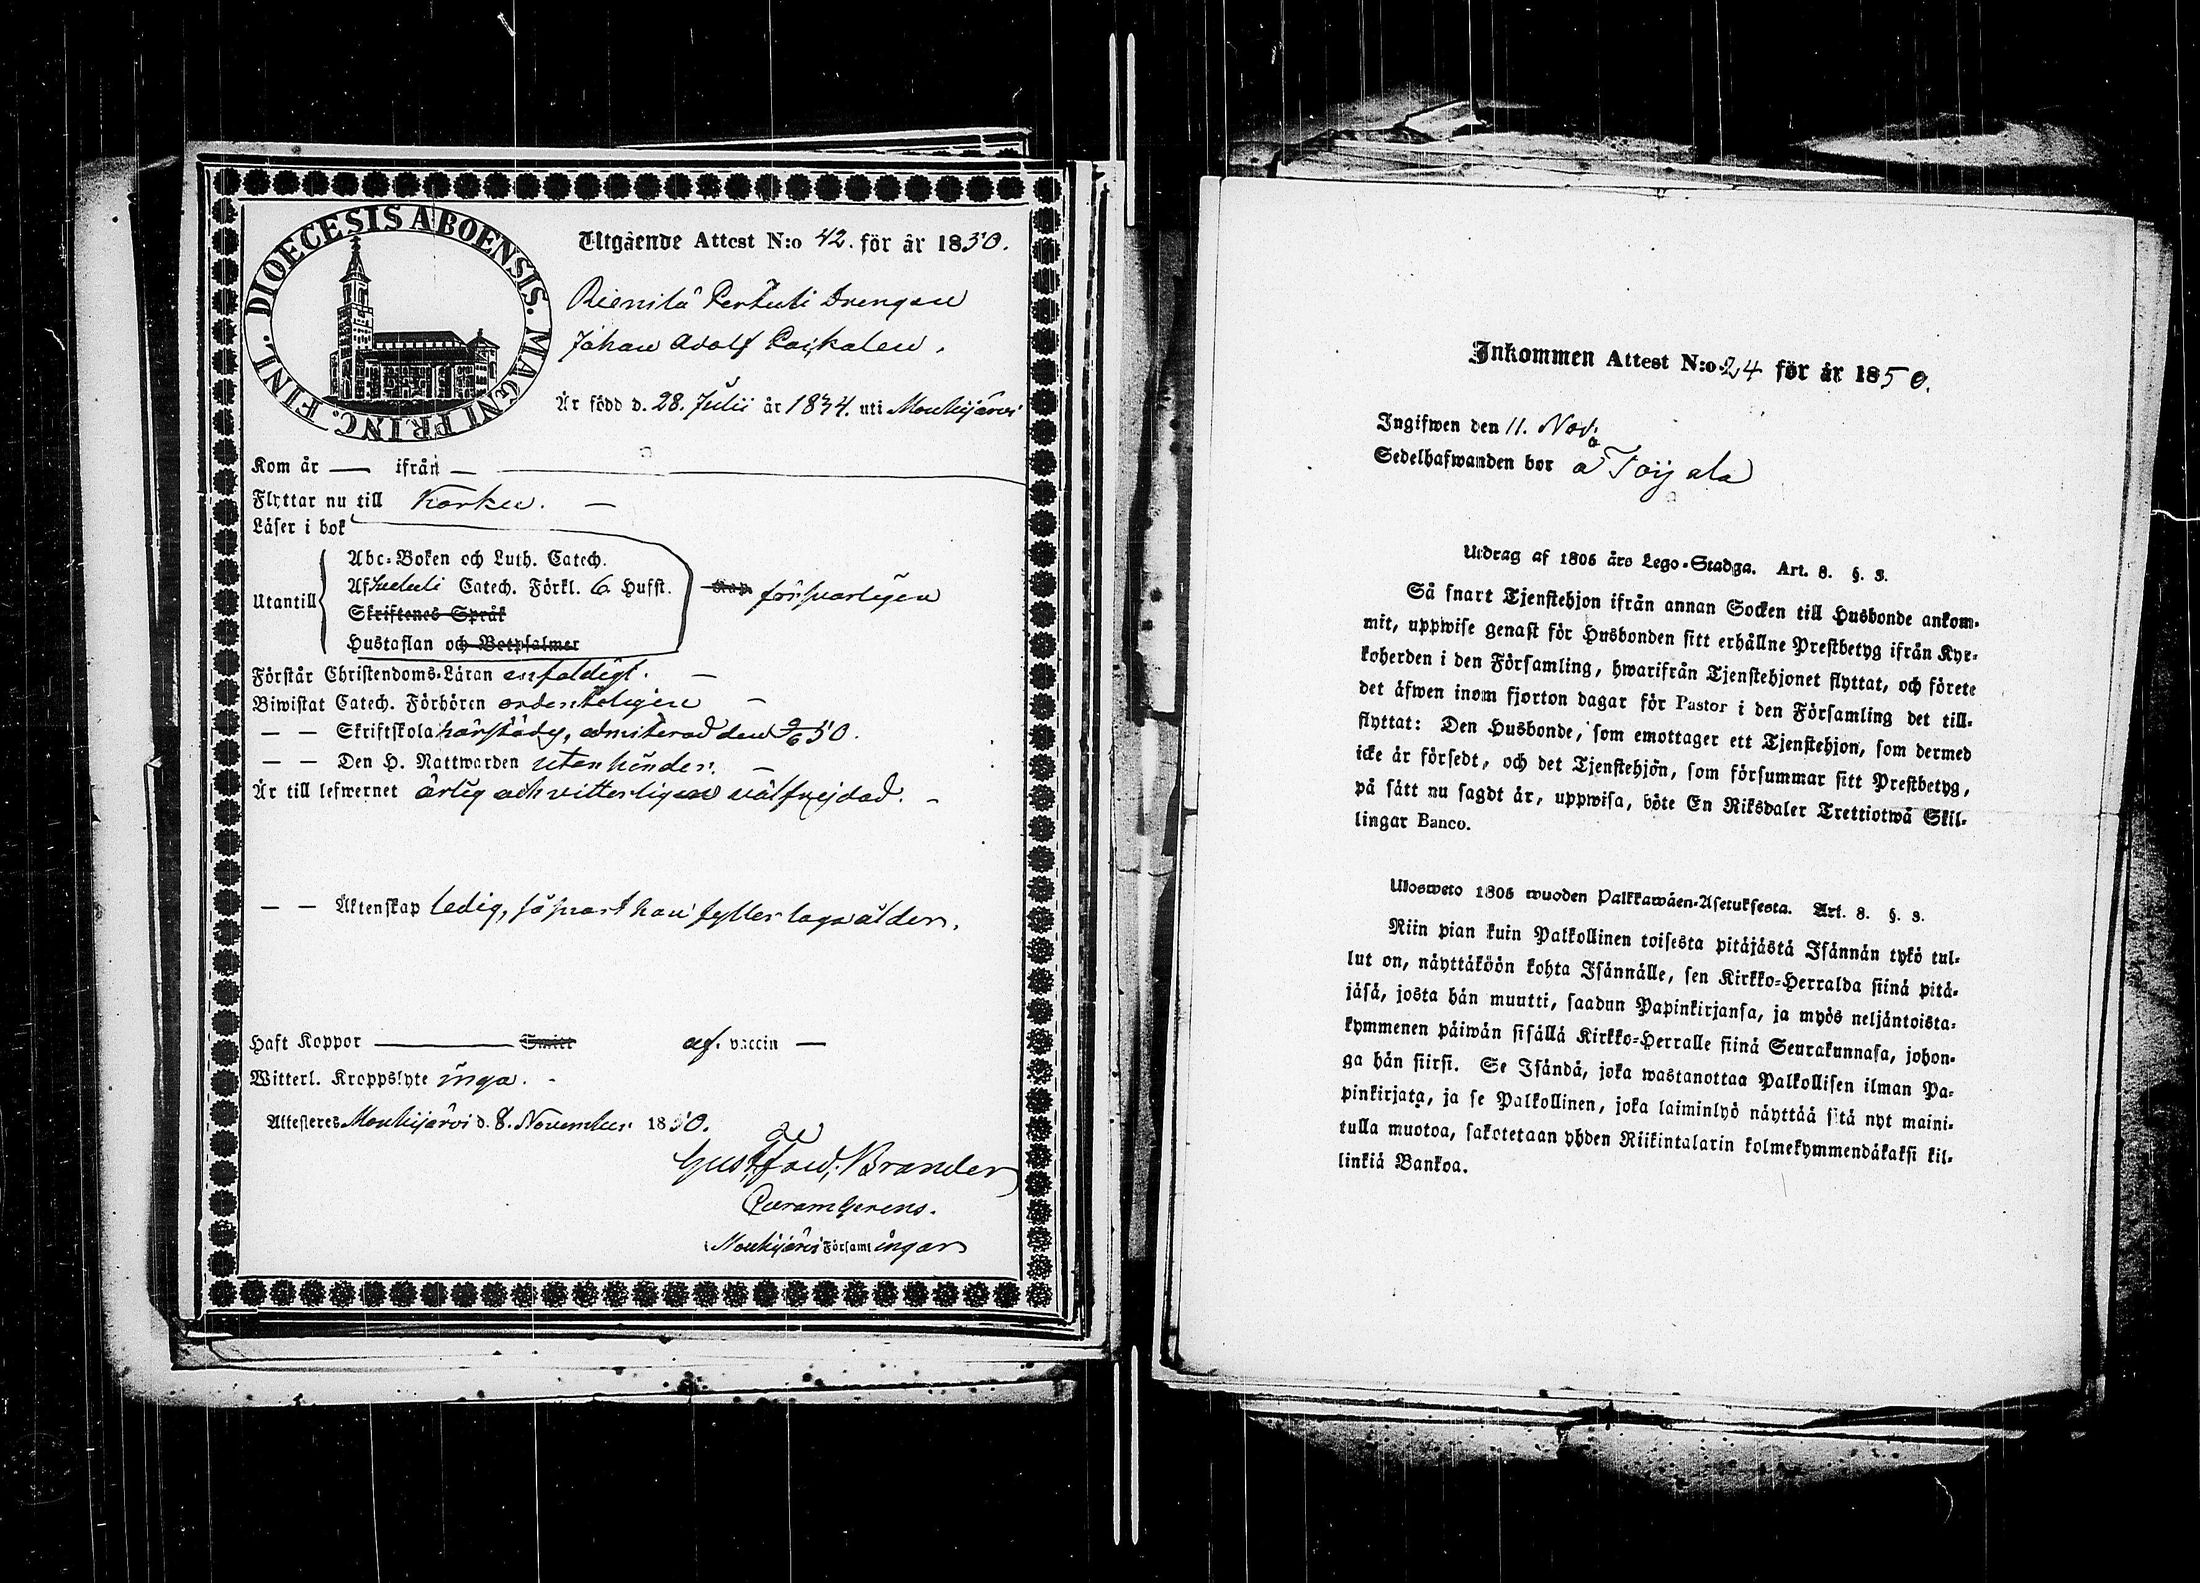 DIOECESIS ABOENSIS. MAGNI PRINC. FINL.
Utgående Attest N:o 42. för år 1850.
Pertuti Drengen
Johan Adolf
Är född d. 28. Julii år 1834. uti Mouhijärvi
Kom år — ifrån —
Flyttar nu till Karku. —
Läser i bok
Utantill
Abc-Boken och Luth. Catech.
Af Catech. Förkl. 6 Hufst.
Skriftenes Språk
Hustaflan och Botpsalmer
Kap. försvarligen
Förstår Christendoms-Läran enfaldigt. —
Biwistat Catech. Förhören ordenteligen —
— — Skriftskola härstädes, admitterad den 9/6 50.
— — Den H. Nattwarden utan hinder. —
Är till lefwernet ärlig och vitterligen välfrejdad. —
— — Äktenskap ledig, så snart han fyller laga ålder.
Haft Koppor — Smitt af vaccin —
Witterl. Kroppslyte inga. -
Attesteras Mouhijärvi d. 8. November 1850.
Gust. Ferd. Brander
Curam Gerens.
i Mouhijärvi Församlingar
Inkommen Attest N:o 24 för år 1850.
Ingifwen den 11. Nov:
Sedelhafwanden bor å Toijala
Utdrag af 1805 års Lego-Stadga. Art. 8. §. 3.
Så snart Tjenstehjon ifrån annan Socken till Husbonde ankom-
mit, uppwise genast för Husbonden sitt erhållne Prestbetyg ifrån Kyr-
koherden i den Församling, hwarifrån Tjenstehjonet flyttat, och förete
det äfwen inom fjorton dagar för Pastor i den Församling det till-
flyttat: Den Husbonde, som emottager ett Tjenstehjon, som dermed
icke är försedt, och det Tjenstehjon, som försummar sitt Prestbetyg,
på sätt nu sagdt är, uppwisa, böte En Riksdaler Trettiotwå Skil-
lingar Banco.
Ulosweto 1805 wuoden Palkkawäen-Asetuksesta. Art. 8. §. 3.
Niin pian kuin Palkollinen toisesta pitäjästä Isännän tykö tul-
lut on, näyttäköön kohta Isännälle, sen Kirkko-Herralda siinä pitä-
jäsä, josta hän muutti, saadun Papinkirjansa, ja myös neljäntoista-
kymmenen päiwän sisällä Kirkko-Herralle siinä Seurakunnasa, johon-
ga hän siirsi. Se Isändä, joka wastanottaa Palkollisen ilman Pa-
pinkirjata, ja se Palkollinen, joka laiminlyö näyttää sitä nyt maini-
tulla muotoa, sakotetaan yhden Riikintalarin kolmekymmendäkaksi kil-
linkiä Bankoa.